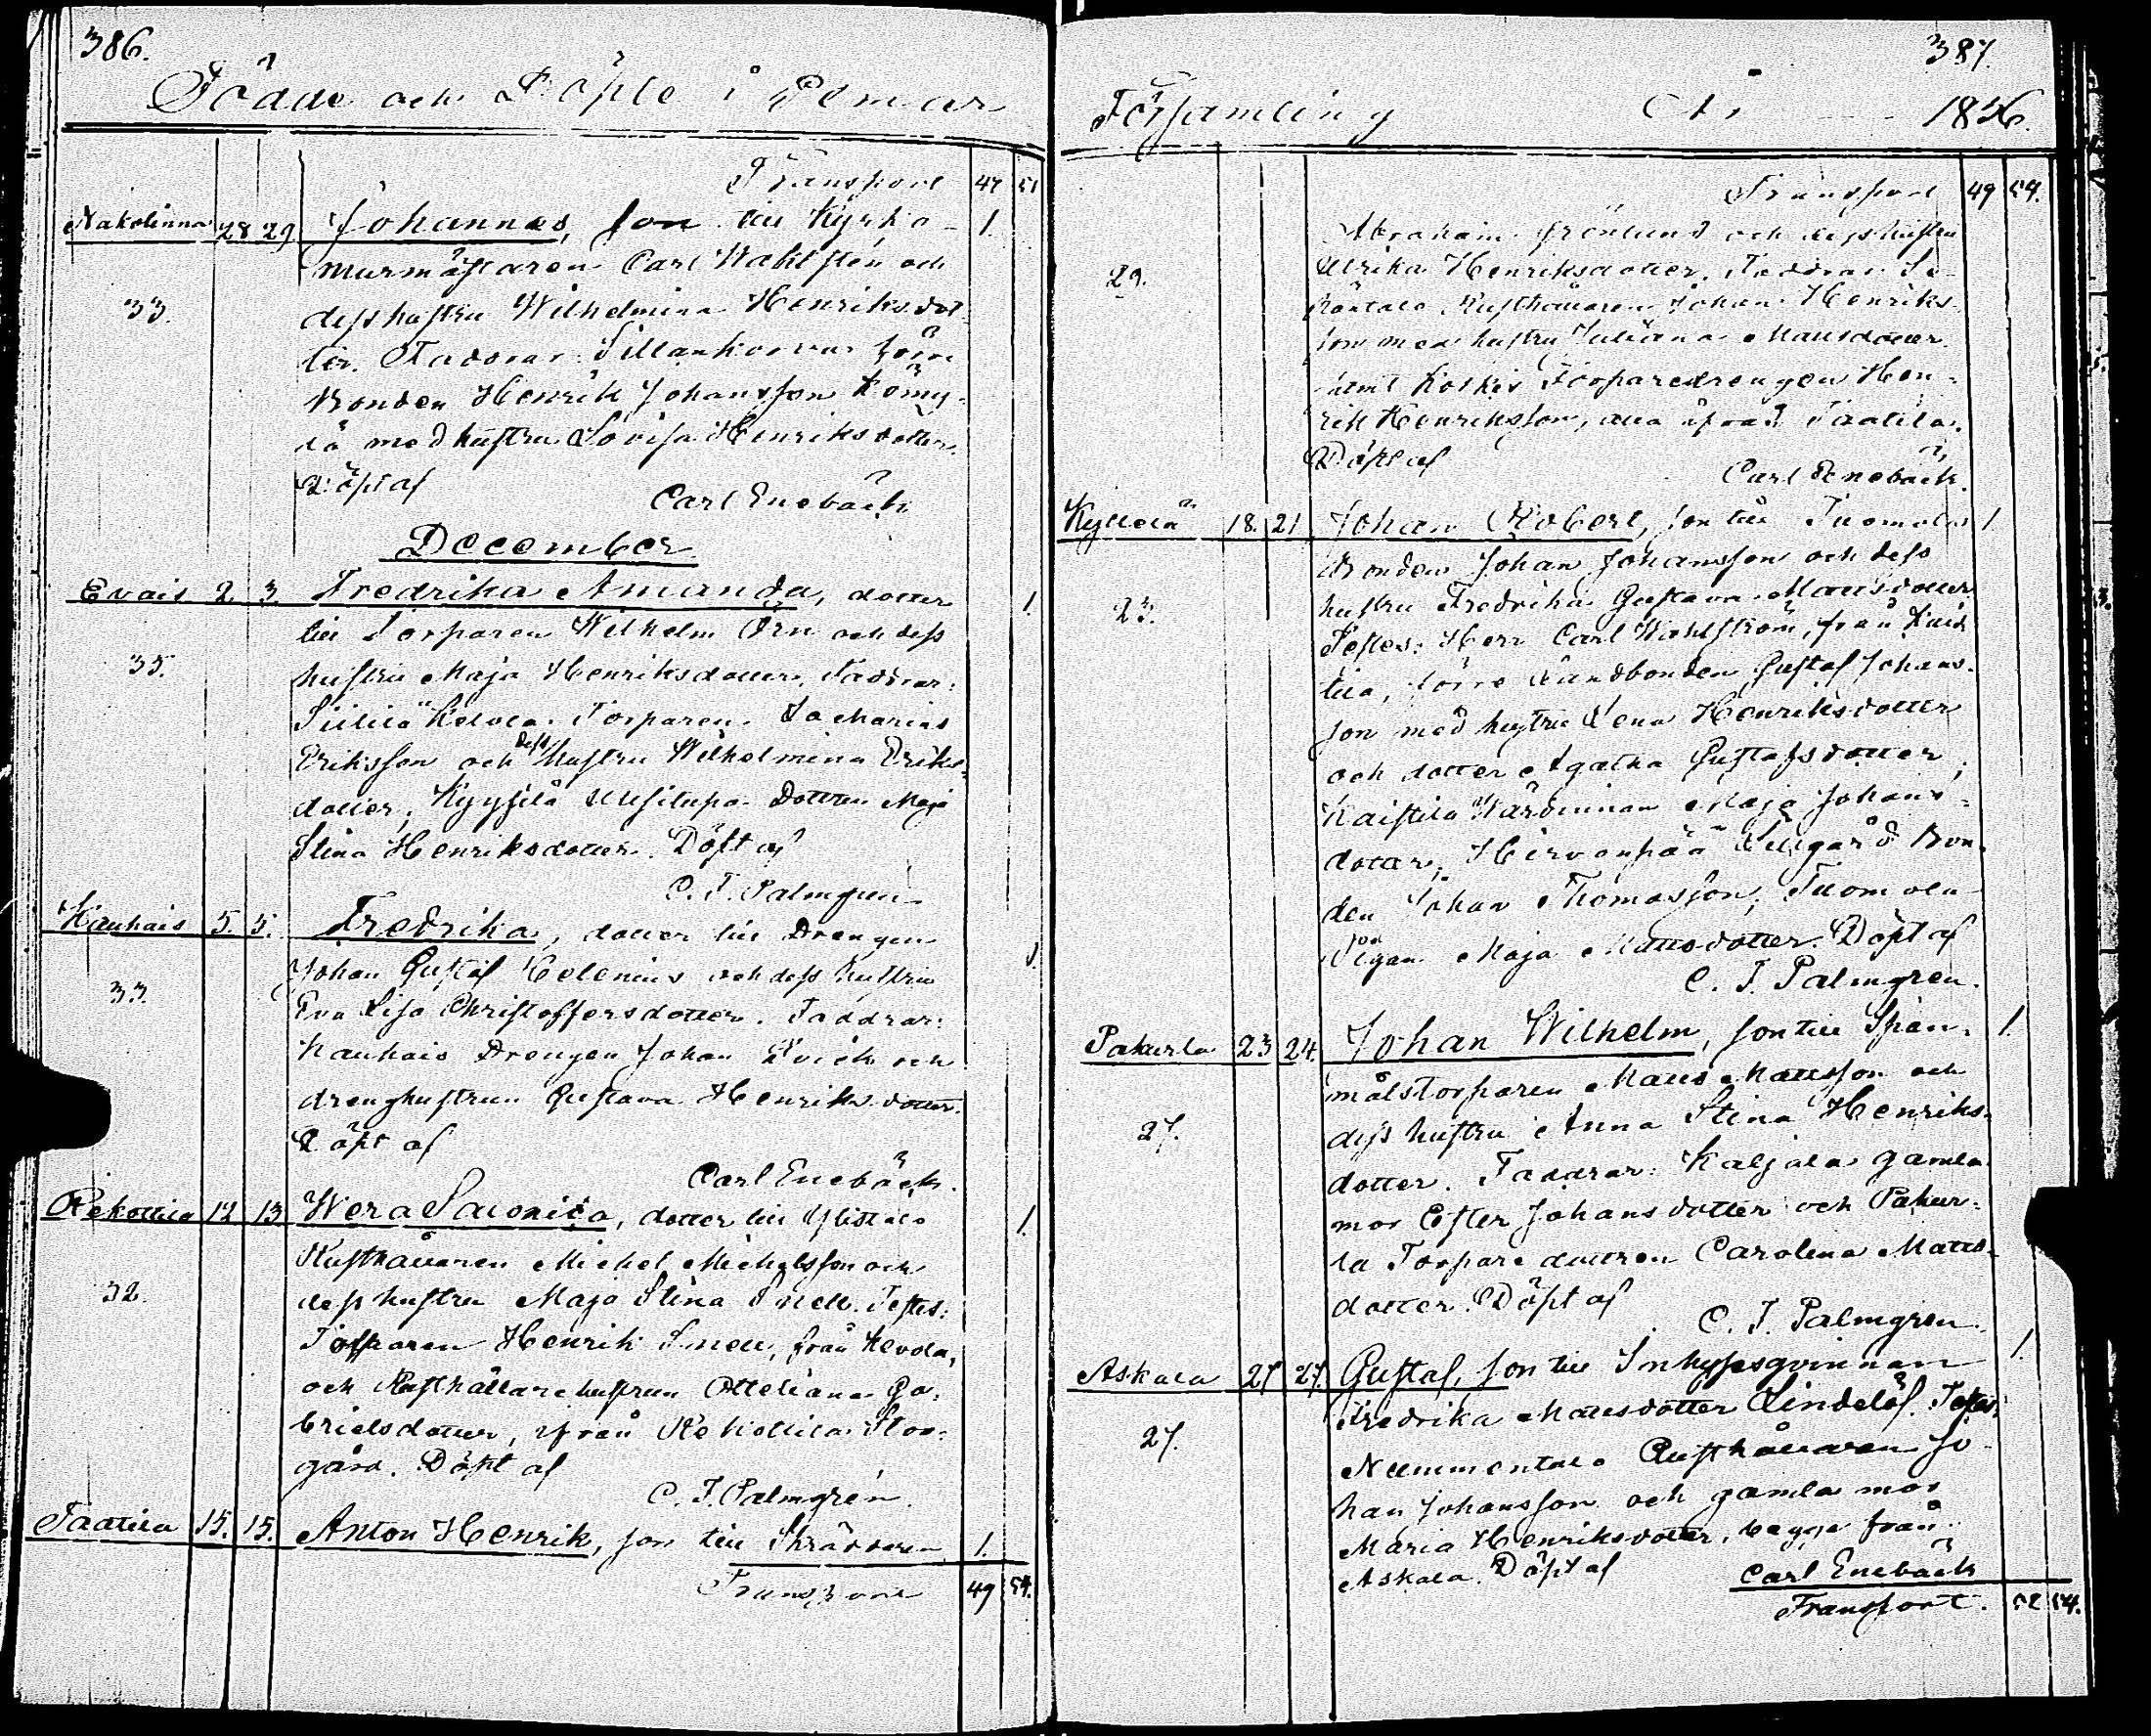 386.
Födde och Döpte i Pemar
Transport 47 51
Nakolinna 28 29 Johannes, son till Kyrko- 1.
murmästaren Carl Wahlstén och
33. dess hustru Wilhelmina Henriksdot-
ter. Faddrar: Sillankorva förre
Bonden Henrik Johansson Kömy-
lä med hustru Lovisa Henriksdotter.
Döpt af
Carl Enebäck
December
Evais 2. 3. Fredrika Amanda, dotter 1.
till Torparen Wilhelm Örn och dess
35. hustru Maja Henriksdotter. Faddrar:
Torparen Zacharias
Eriksson och dess hustru Wilhelmina Eriks-
dotter, Kyysilä Dottren Maja
Stina Henriksdotter. Döpt af
C. F. Palmgren
Kauhais 5. 5. Fredrika, dotter till Drengen 1.
Johan Gustaf Helenius och dess hustru
33. Eva Lisa Christoffersdotter. Faddrar:
Kauhais Drengen Johan och
drenghustrun Gustava Henriksdotter.
Döpt af
Carl Enebäck.
Rekottila 12 13 Wera Savonica, dotter till 1.
Rusthållaren Michel Michelsson och
32. dess hustru Maja Stina Snell. Testes:
Torparen Henrik Snell, från Kevola,
och Rusthållarehustrun Otteliana Ga-
brielsdotter, ifrån Rekottila Stor-
gård. Döpt af
C. F. Palmgren.
Taatila 15. 15. Anton Henrik, son till Skräddaren 1.
Transport 49 54.
387.
Församling År 1856.
Transport 49 54.
Abraham Grönlund och dess hustru
29. Ulrika Henriksdotter. Faddrar:
Rusthållaren Johan Henriks-
son med hustru Juliana Mattsdotter
samt Koskis Torparedrengen Hen-
rik Henriksson, alla ifrån Taatila.
Döpt af
Carl Enebäck.
Kyttelä 18. 21. Johan Robert, son till Tuomola 1.
Bonden Johan Johansson och dess
23. hustru Fredrika Gustava Mattsdotter
Testes: Herr Carl Wahlström, från
förre Landbonden Gustaf Johans-
son med hustru Lena Henriksdotter
och dotter Agatha Gustafsdotter,
Kaistila Wärdinnan Maja Johans-
dotter, Hirvonpää Lillgård Bon-
den Johan Thomasson, Tuomola
Pigan Maja Mattsdotter. Döpt af
C. F. Palmgren.
Pakurla 23 24. Johan Wilhelm, son till Span- 1.
målstorparen Matts Mattsson och
27. dess hustru Anna Stina Henriks-
dotter. Faddrar: Kaljala gamla
mor Ester Johansdotter och Pakur-
la Torparedottren Carolina Matts-
dotter. Döpt af
C. F. Palmgren.
Askala 27 27. Gustaf, son till Inhysesqvinnan 1.
Fredrika Mattsdotter Lindelöf. Testes:
27. Nummentalo Rusthållaren Jo-
han Johansson och gamla mor
Maria Henriksdotter, begge från
Askala. Döpt af Carl Enebäck
Transport. 52 54.